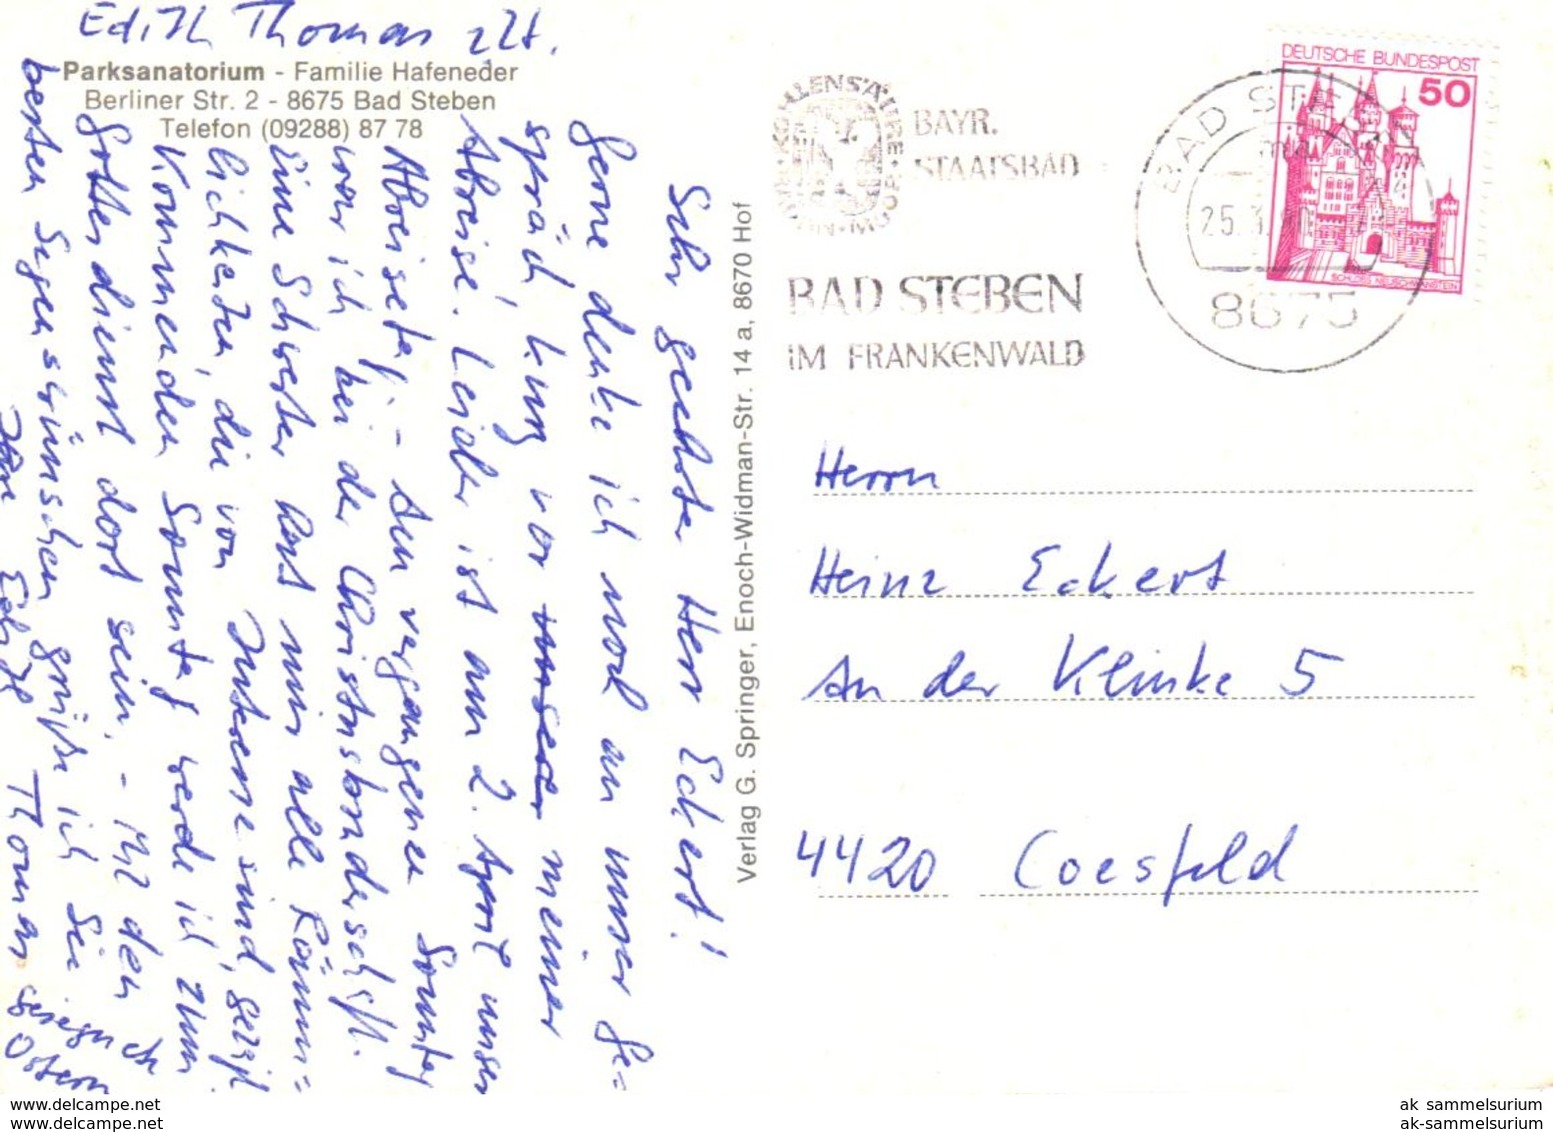 Edith Thomas zzt.
Parksanatorium - Familie Hafeneder
Berliner Str. 2 - 8675 Bad Steben
Telefon (09288) 87 78
Sehr geehrter Herr Eckert!
Gerne denke ich noch an unser Ge-
spräch, kurz vor unserer meiner
Abreise. Leider ist am 2. April unser
Abreisetag. - Am vergangenen Sonntag
war ich bei der Christusbruderschaft.
Eine Schwester hat mir alle Räum=
lichkeiten, die von Interesse sind, gezeigt
Kommenden Sonntag werde ich zum
Gottesdienst dort sein. - Mit den
besten Segenswünschen grüße ich Sie
Ihre Edith Thomas
gesegnete
Ostern
Verlag G. Springer, Enoch-Widman-Str. 14 a, 8670 Hof
KOHLENSÄURE
MOOR
BAYR.
STAATSBAD
BAD STEBEN
IM FRANKENWALD
BAD STEBEN
25.3.
8675
DEUTSCHE BUNDESPOST
50
SCHLOSS NEUSCHWANSTEIN
Herrn
Heinz Eckert
An der Klinke 5
4420 Coesfeld
www.delcampe.net
www.delcampe.net
ak_sammelsurium
ak-sammelsurium